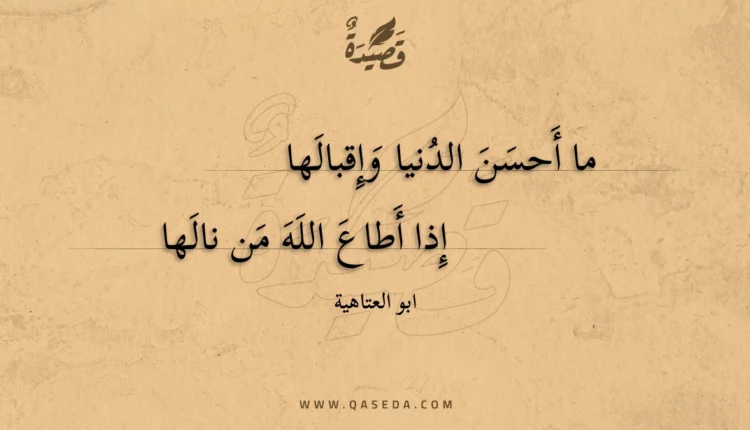 قَصِيدَةٌ
ما أَحسَنَ الدُنيا وَإِقبالَها
إِذا أَطاعَ اللَهَ مَن نالَها
ابو العتاهية
WWW.QASEDA.COM